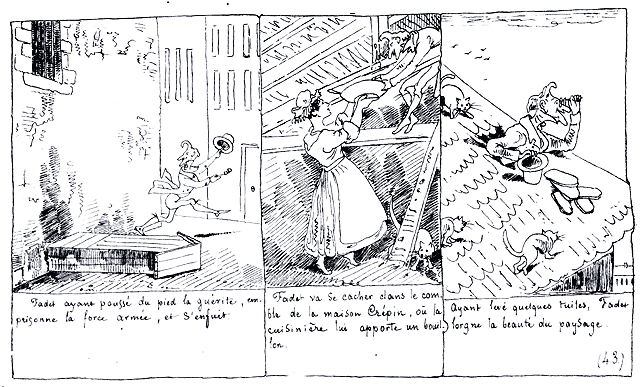 Fadet ayant poussé du pied la guérite, em-
prisonne la force armée, et s'enfuit.
Fadet va se cacher dans le com-
ble de la maison Crépin, où la
cuisinière lui apporte un bouil-
lon.
Ayant levé quelques tuiles, Fadet
lorgne la beauté du paysage.
(43)